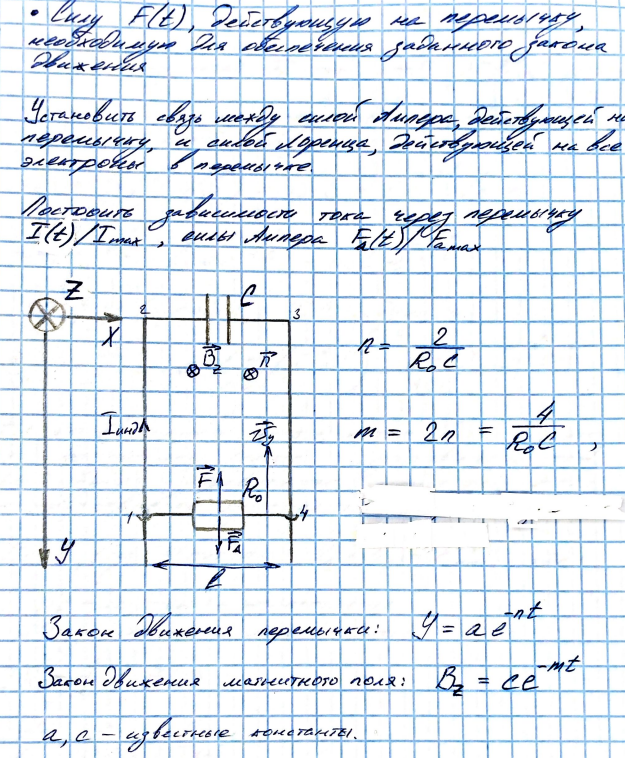 • Силу F(t), действующую на перемычку,
необходимую для обеспечения заданного закона
движения
Установить связь между силой Ампера, действующей на
перемычку, и силой Лоренца, действующей на все
электроны в перемычке.
Построить зависимости тока через перемычку
I(t)/Imax, силы Ампера Fa(t)/Famax
Z
X
2
C
3
B⃗z
n⃗
n = 2/(R₀C)
Iинд
v⃗y
m = 2n = 4/(R₀C),
F⃗
R₀
1
4
F⃗A
Y
l
Закон движения перемычки: y = ae^(-nt)
Закон движения магнитного поля: Bz = ce^(-mt)
a, c – известные константы.